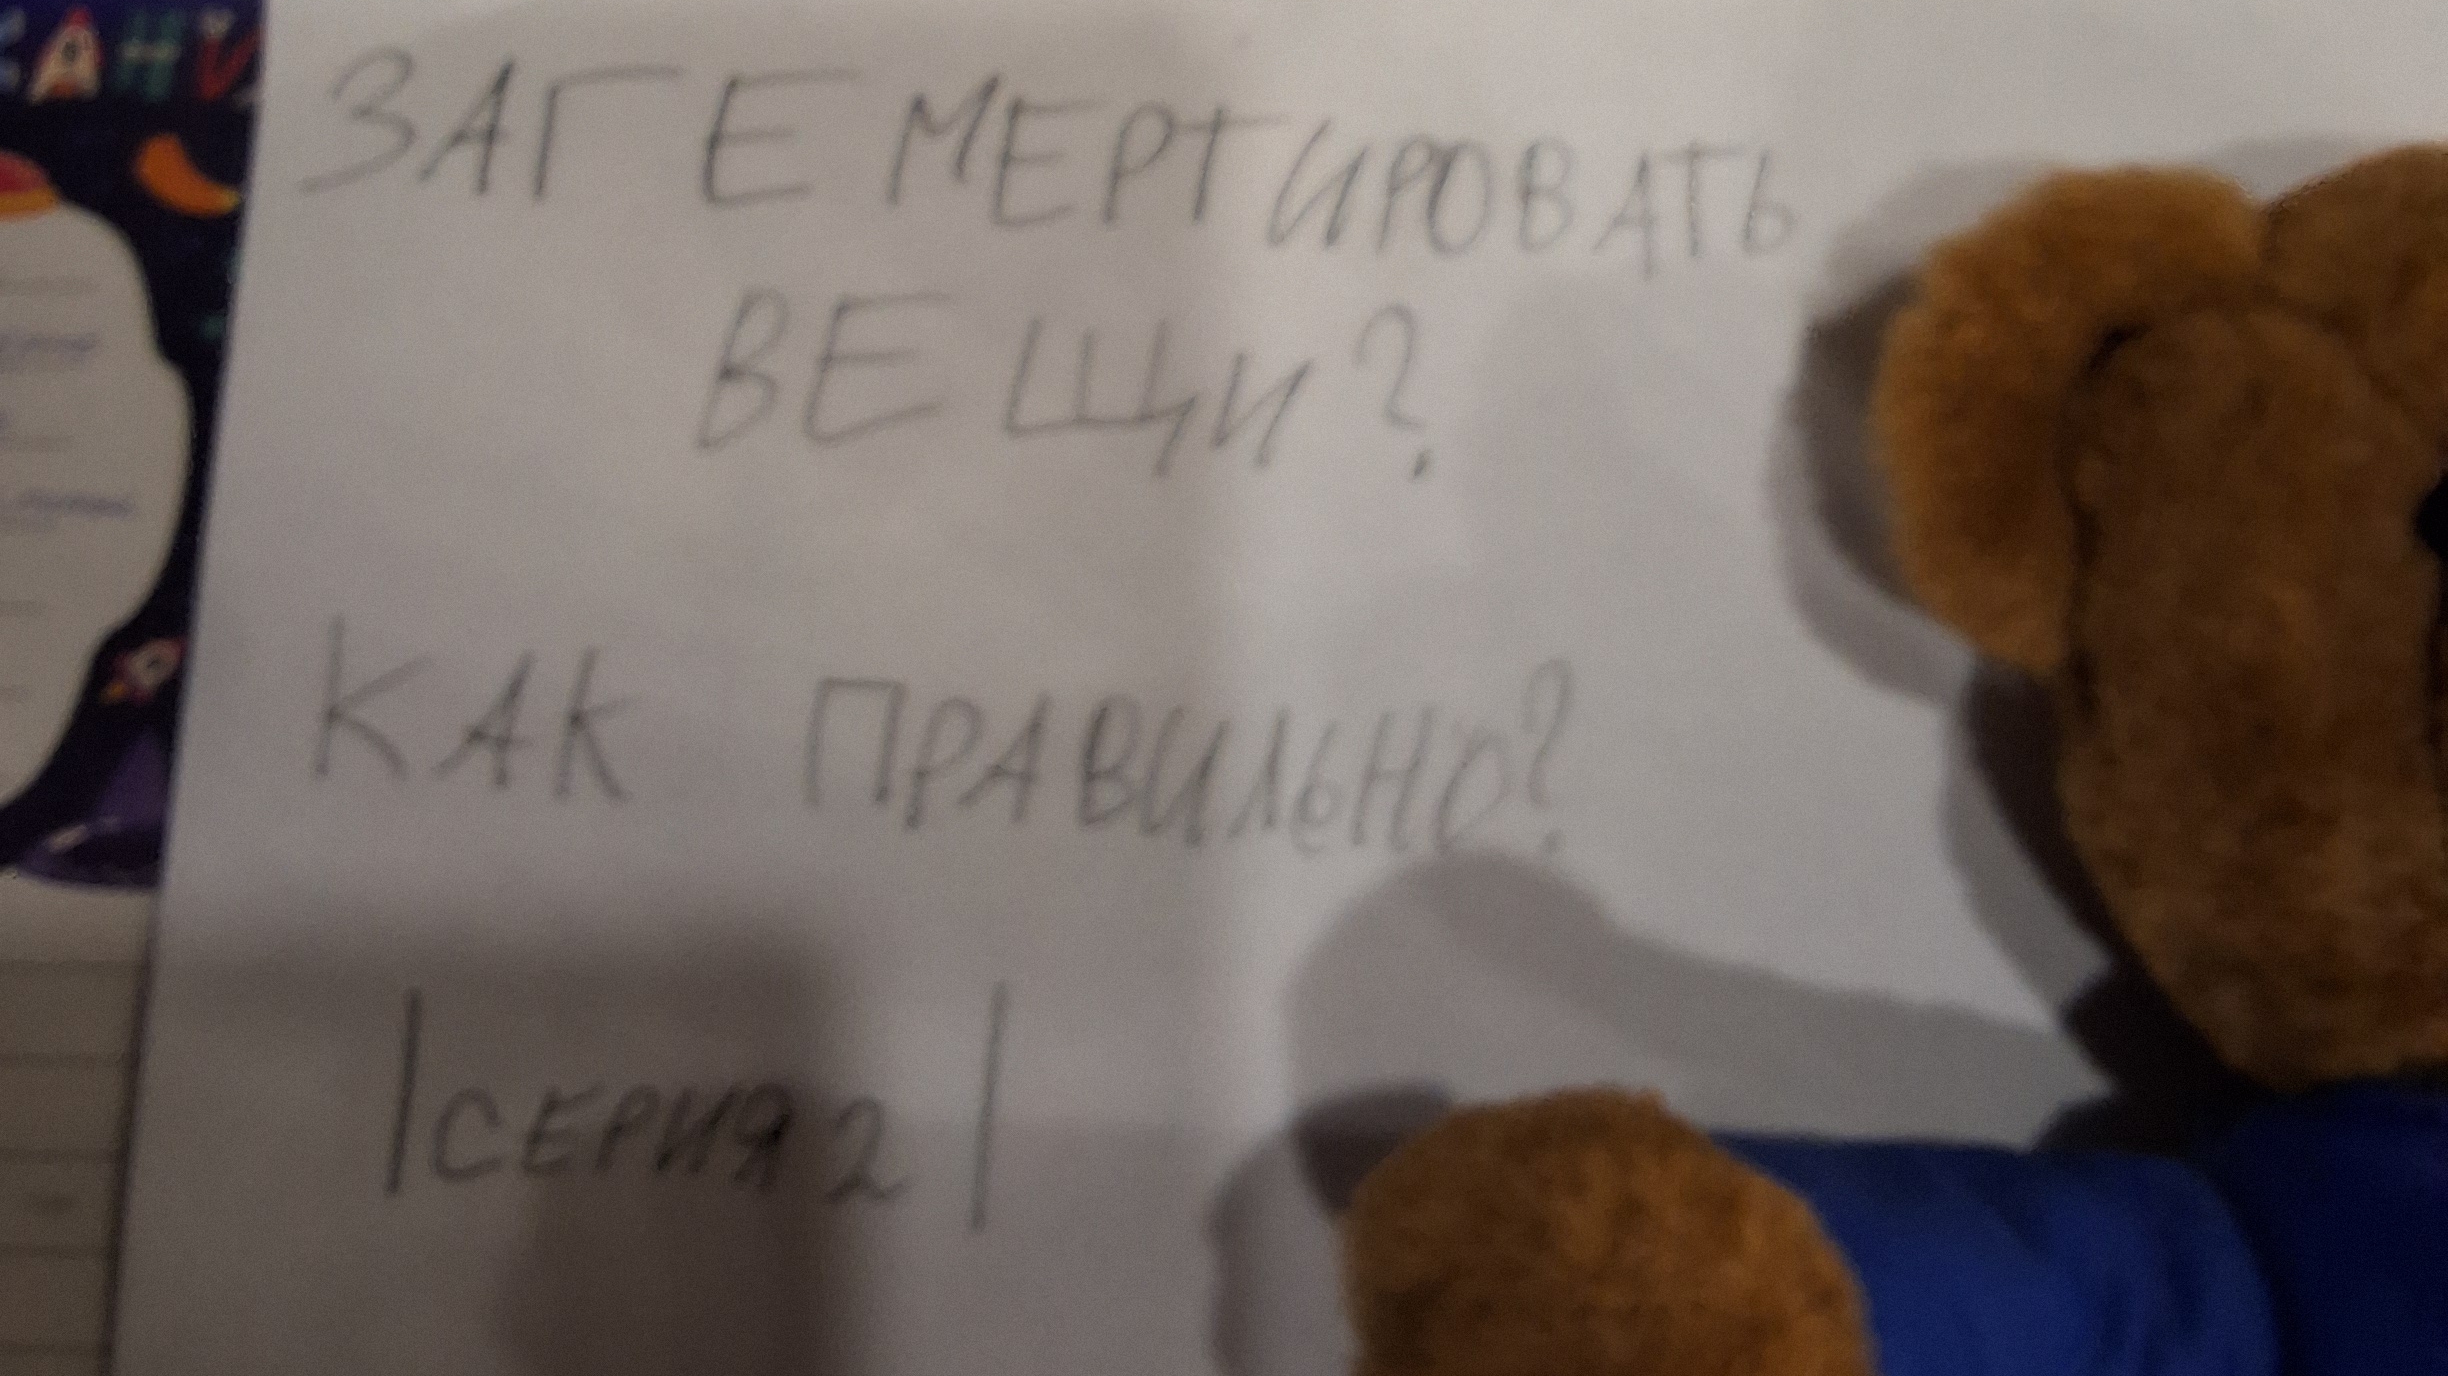 ЗАГЕМЕРТИРОВАТЬ
ВЕЩИ?
КАК ПРАВИЛЬНО?
|СЕРИЯ 2|